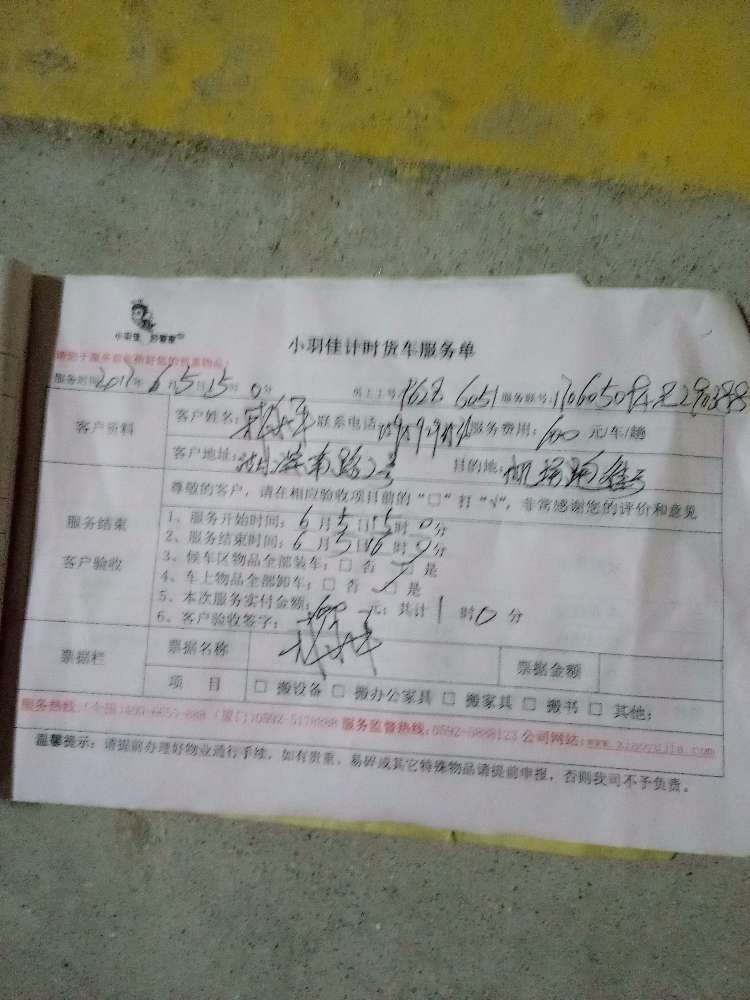 小羽佳 好管家
小羽佳计时货车服务单
服务时间:2017年6月5日15时0分 服务账号:
客户资料
客户姓名: 联系电话: 服务费用: 元/车/趟
客户地址:湖滨南路2号 目的地:
服务结束
客户验收
尊敬的客户,请在相应验收项目前的“□”打“√”,非常感谢您的评价和意见
1、服务开始时间:6月5日15时0分
2、服务结束时间:6月5日16时0分
3、候车区物品全部装车:□ 否 □ 是
4、车上物品全部卸车:□ 否 □ 是
5、本次服务实付金额: 元; 共计1时0分
6、客户验收签字:
票据栏
票据名称 票据金额
项 目 □ 搬设备 □ 搬办公家具 □ 搬家具 □ 搬书 □ 其他:
服务热线:(全国) (厦门)0592-5178888 服务监督热线:0592-5888123 公司网站:www.xiaoyujia.com
温馨提示:请提前办理好物业通行手续,如有贵重、易碎或其它特殊物品请提前申报,否则我司不予负责。